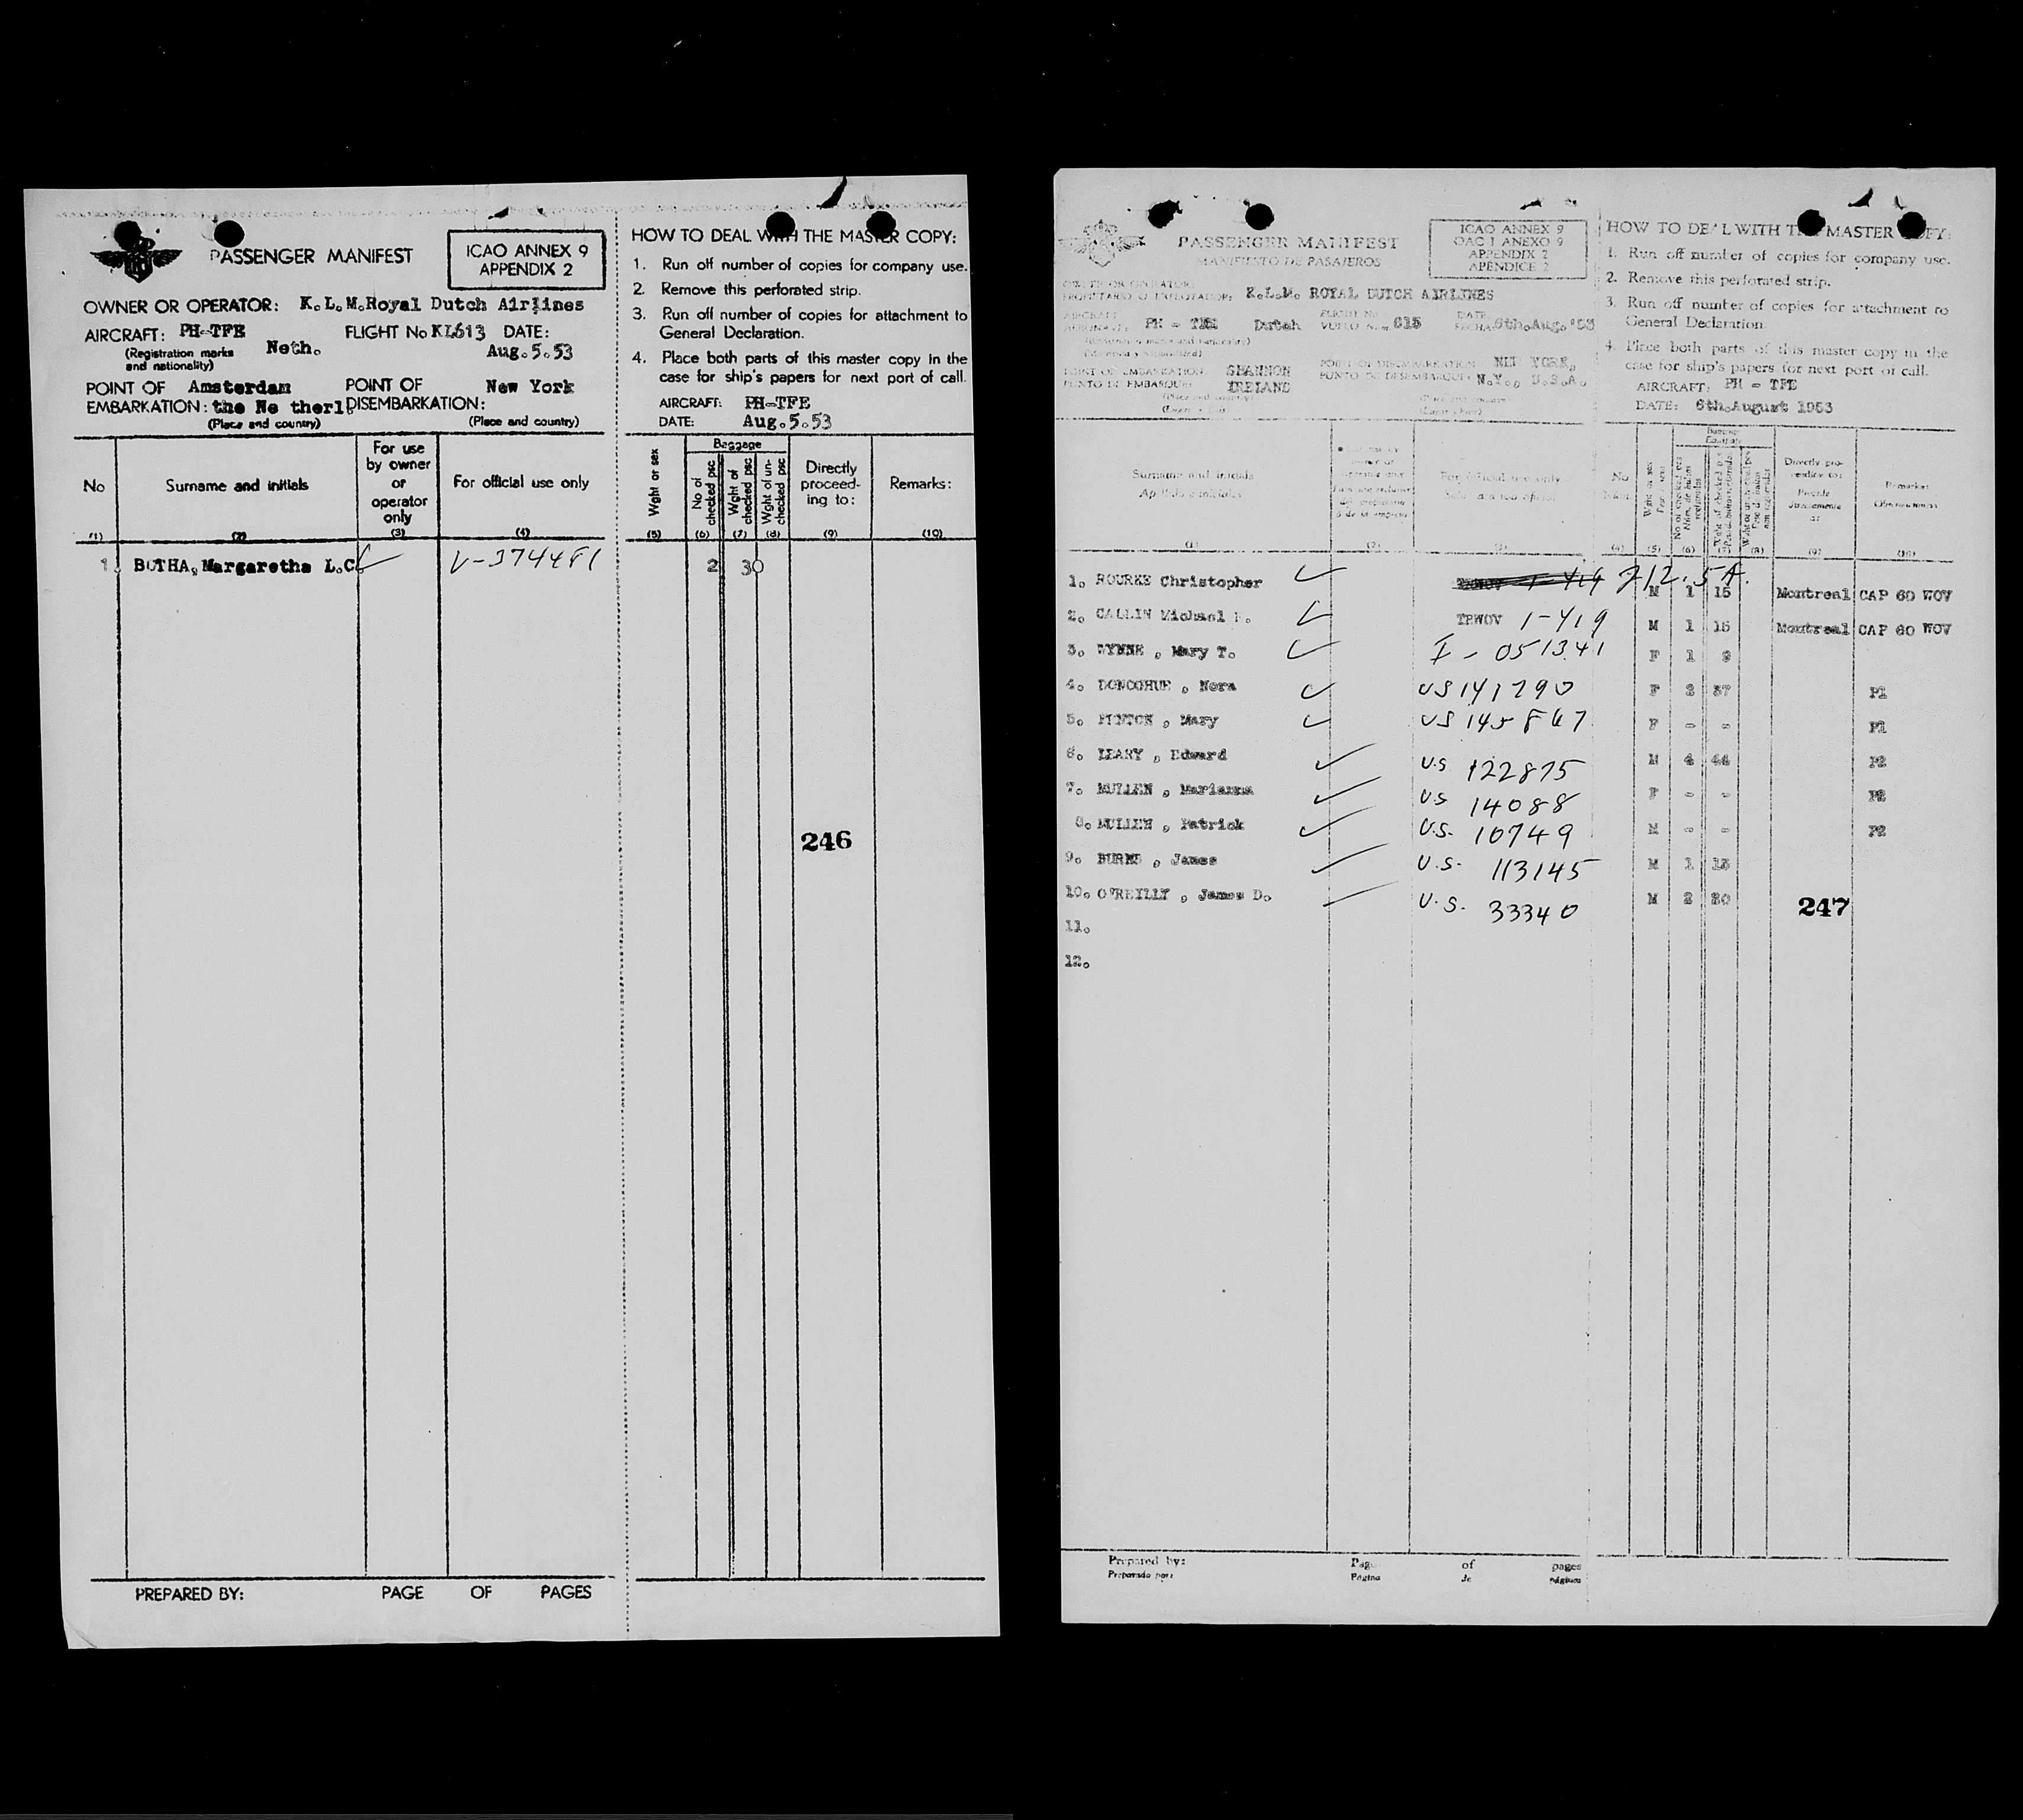 PASSENGER MANIFEST
ICAO ANNEX 9
APPENDIX 2
OWNER OR OPERATOR: K.L.M.Royal Dutch Airlines
AIRCRAFT: PH-TFE FLIGHT No KL613 DATE:
(Registration marks and nationality) Neth. Aug.5.53
POINT OF Amsterdam POINT OF New York
EMBARKATION: the Ne therl DISEMBARKATION:
(Place and country) (Place and country)
No Surname and initials For use by owner or operator only For official use only
(1) (2) (3) (4)
1. BOTHA, Margaretha L.C. V-374481
PREPARED BY: PAGE OF PAGES
HOW TO DEAL WITH THE MASTER COPY:
1. Run off number of copies for company use.
2. Remove this perforated strip.
3. Run off number of copies for attachment to
General Declaration.
4. Place both parts of this master copy in the
case for ship's papers for next port of call.
AIRCRAFT: PH-TFE
DATE: Aug.5.53
Baggage
Wght or sex No of checked psc Wght of checked psc Wght of un-checked psc Directly proceed-ing to: Remarks:
(5) (6) (7) (8) (9) (10)
2 30
246
PASSENGER MANIFEST
MANIFIESTO DE PASAJEROS
ICAO ANNEX 9
OACI ANEXO 9
APPENDIX 2
APENDICE 2
OWNER OR OPERATOR:
PROPIETARIO O EXPLOTADOR: K.L.M. ROYAL DUTCH AIRLINES
AIRCRAFT: FLIGHT No DATE
AERONAVE: PH - TFE Dutch VUELO Num 613 FECHA: 6th.Aug.'53
POINT OF EMBARKATION: SHANNON POINT OF DISEMBARKATION: NEW YORK,
PUNTO DE EMBARQUE: IRELAND PUNTO DE DESEMBARQUE: N.Y., U.S.A.
(Place and country) (Place and country)
Surname and initials For official use only
Apellido e iniciales Sólo para uso oficial
(1) (2) (3)
1. ROURKE Christopher 212.5A.
2. CALLIN Michael TRWOV 1-419
3. WYNNE , Mary T. I-051341
4. DONOGHUE , Nora US 141790
5. FINTON , Mary US 145867
6. LEARY , Edward U.S 122875
7. MULLEN , Marianna U.S 14088
8. MULLEN , Patrick U.S. 10749
9. BURNS , James U.S. 113145
10. O'REILLY , James D. U.S. 33340
11.
12.
Prepared by: Page of pages
Preparado por: Página de páginas
HOW TO DEAL WITH THE MASTER COPY:
1. Run off number of copies for company use.
2. Remove this perforated strip.
3. Run off number of copies for attachment to
General Declaration.
4. Place both parts of this master copy in the
case for ship's papers for next port of call.
AIRCRAFT: PH - TFE
DATE: 6th.August 1953
Baggage
Equipaje
No Directly pro-ceeding to: Remarks
(4) (5) (6) (7) (8) (9) (10)
M 1 15 Montreal CAP 60 WOV
M 1 15 Montreal CAP 60 WOV
F 1 9
F 3 37 P1
F - - P1
M 4 44 P2
F - - P2
M - - P2
M 1 13
M 2 20
247